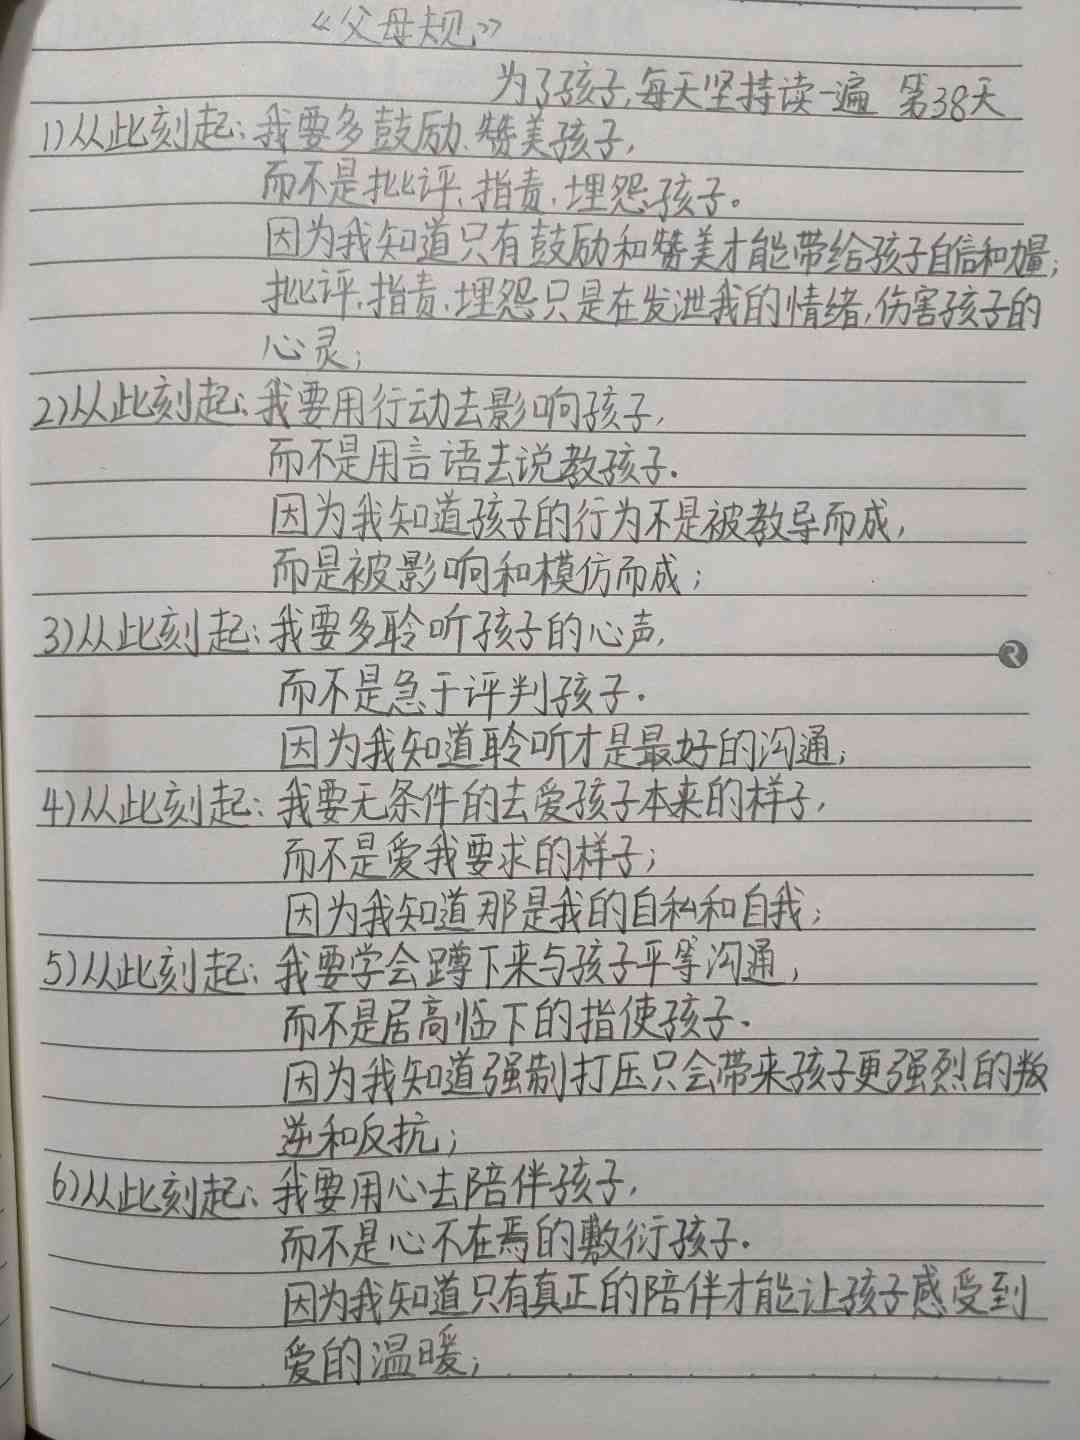 《父母规》
为了孩子,每天坚持读一遍 第38天
1)从此刻起:我要多鼓励、赞美孩子,
而不是批评、指责、埋怨孩子。
因为我知道只有鼓励和赞美才能带给孩子自信和力量;
批评、指责、埋怨只是在发泄我的情绪,伤害孩子的
心灵;
2)从此刻起:我要用行动去影响孩子,
而不是用言语去说教孩子.
因为我知道孩子的行为不是被教导而成,
而是被影响和模仿而成;
3)从此刻起:我要多聆听孩子的心声,
而不是急于评判孩子.
因为我知道聆听才是最好的沟通;
4)从此刻起:我要无条件的去爱孩子本来的样子,
而不是爱我要求的样子;
因为我知道那是我的自私和自我;
5)从此刻起:我要学会蹲下来与孩子平等沟通,
而不是居高临下的指使孩子.
因为我知道强制打压只会带来孩子更强烈的叛
逆和反抗;
6)从此刻起:我要用心去陪伴孩子,
而不是心不在焉的敷衍孩子.
因为我知道只有真正的陪伴才能让孩子感受到
爱的温暖;